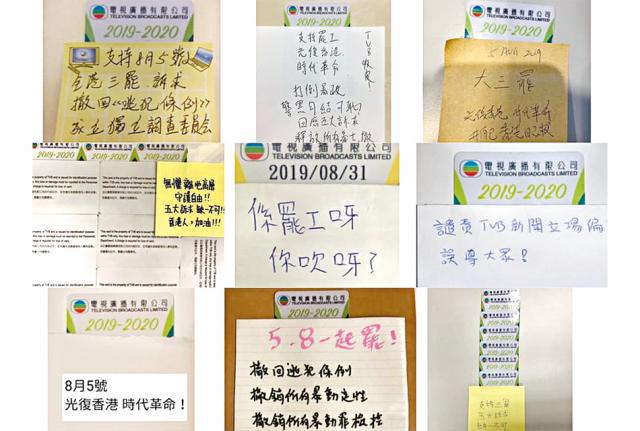 電視廣播有限公司
TELEVISION BROADCASTS LIMITED
2019-2020
支持8月5號
全港三罷 訴求
撤回《逃犯條例》
成立獨立調查委員會
電視廣播有限公司
TELEVISION BROADCASTS LIMITED
2019-2020
支持罷工
光復香港
時代革命
打倒暴政
警黑勾結可恥
回應五大訴求
釋放所有義士
TVB收皮
電視廣播有限公司
TELEVISION BROADCASTS LIMITED
2019-2020
5 AUG 2019
大三罷
光復香港 時代革命
電視廣播有限公司
TELEVISION BROADCASTS LIMITED
2019-2020
無懼離地高層
守護自由!!
五大訴求 缺一不可!!
香港人,加油!!!
電視廣播有限公司
TELEVISION BROADCASTS LIMITED
2019/08/31
係罷工呀
你吹呀?
電視廣播有限公司
TELEVISION BROADCASTS LIMITED
2019-2020
譴責TVB新聞立場偏
誤導大眾!
電視廣播有限公司
TELEVISION BROADCASTS LIMITED
2019-2020
8月5號
光復香港 時代革命!
電視廣播有限公司
TELEVISION BROADCASTS LIMITED
2019-2020
5.8一起罷!
撤回逃犯條例
撤銷所有暴動定性
撤銷所有暴動罪檢控
支持三罷
五大訴求
缺一不可